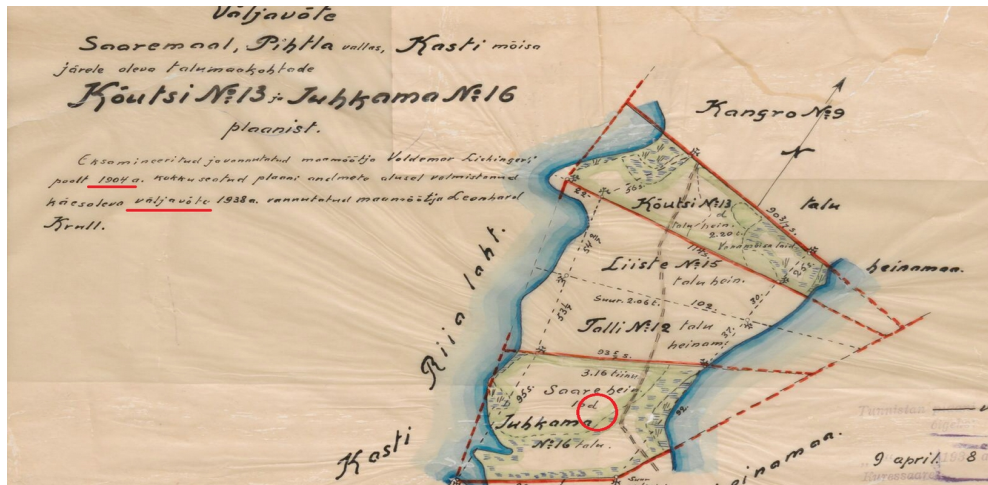 Väljavõte
Saaremaal, Pihtla vallas, Kasti mõisa
järele oleva talumaakohtade
Kõutsi №13 ja Juhkama №16
plaanist.
Eksamineeritud ja vannutatud maamõõtja Voldemar
poolt 1904 a. kokkuseatud plaani andmete alusel valmistanud
käesoleva väljavõte 1938 a. vannutatud maamõõtja Leonhard
Krull.
Kangro №9
N
talu
heinamaa.
Riia laht.
22.
56s.
Kõutsi №13
d
talu hein.
2.20 t.
Vanamõisa laid
Liiste №15
talu hein.
Suur. 2.06 t. 102
30.
Talli №12 talu
heinam.
37.
53½
93⅔ s.
3.16 tiinu
Saare hein.
95s.
Juhkama
№16 talu.
Kasti
einamaa.
Tunnistan
9 april 8
Kuressaare